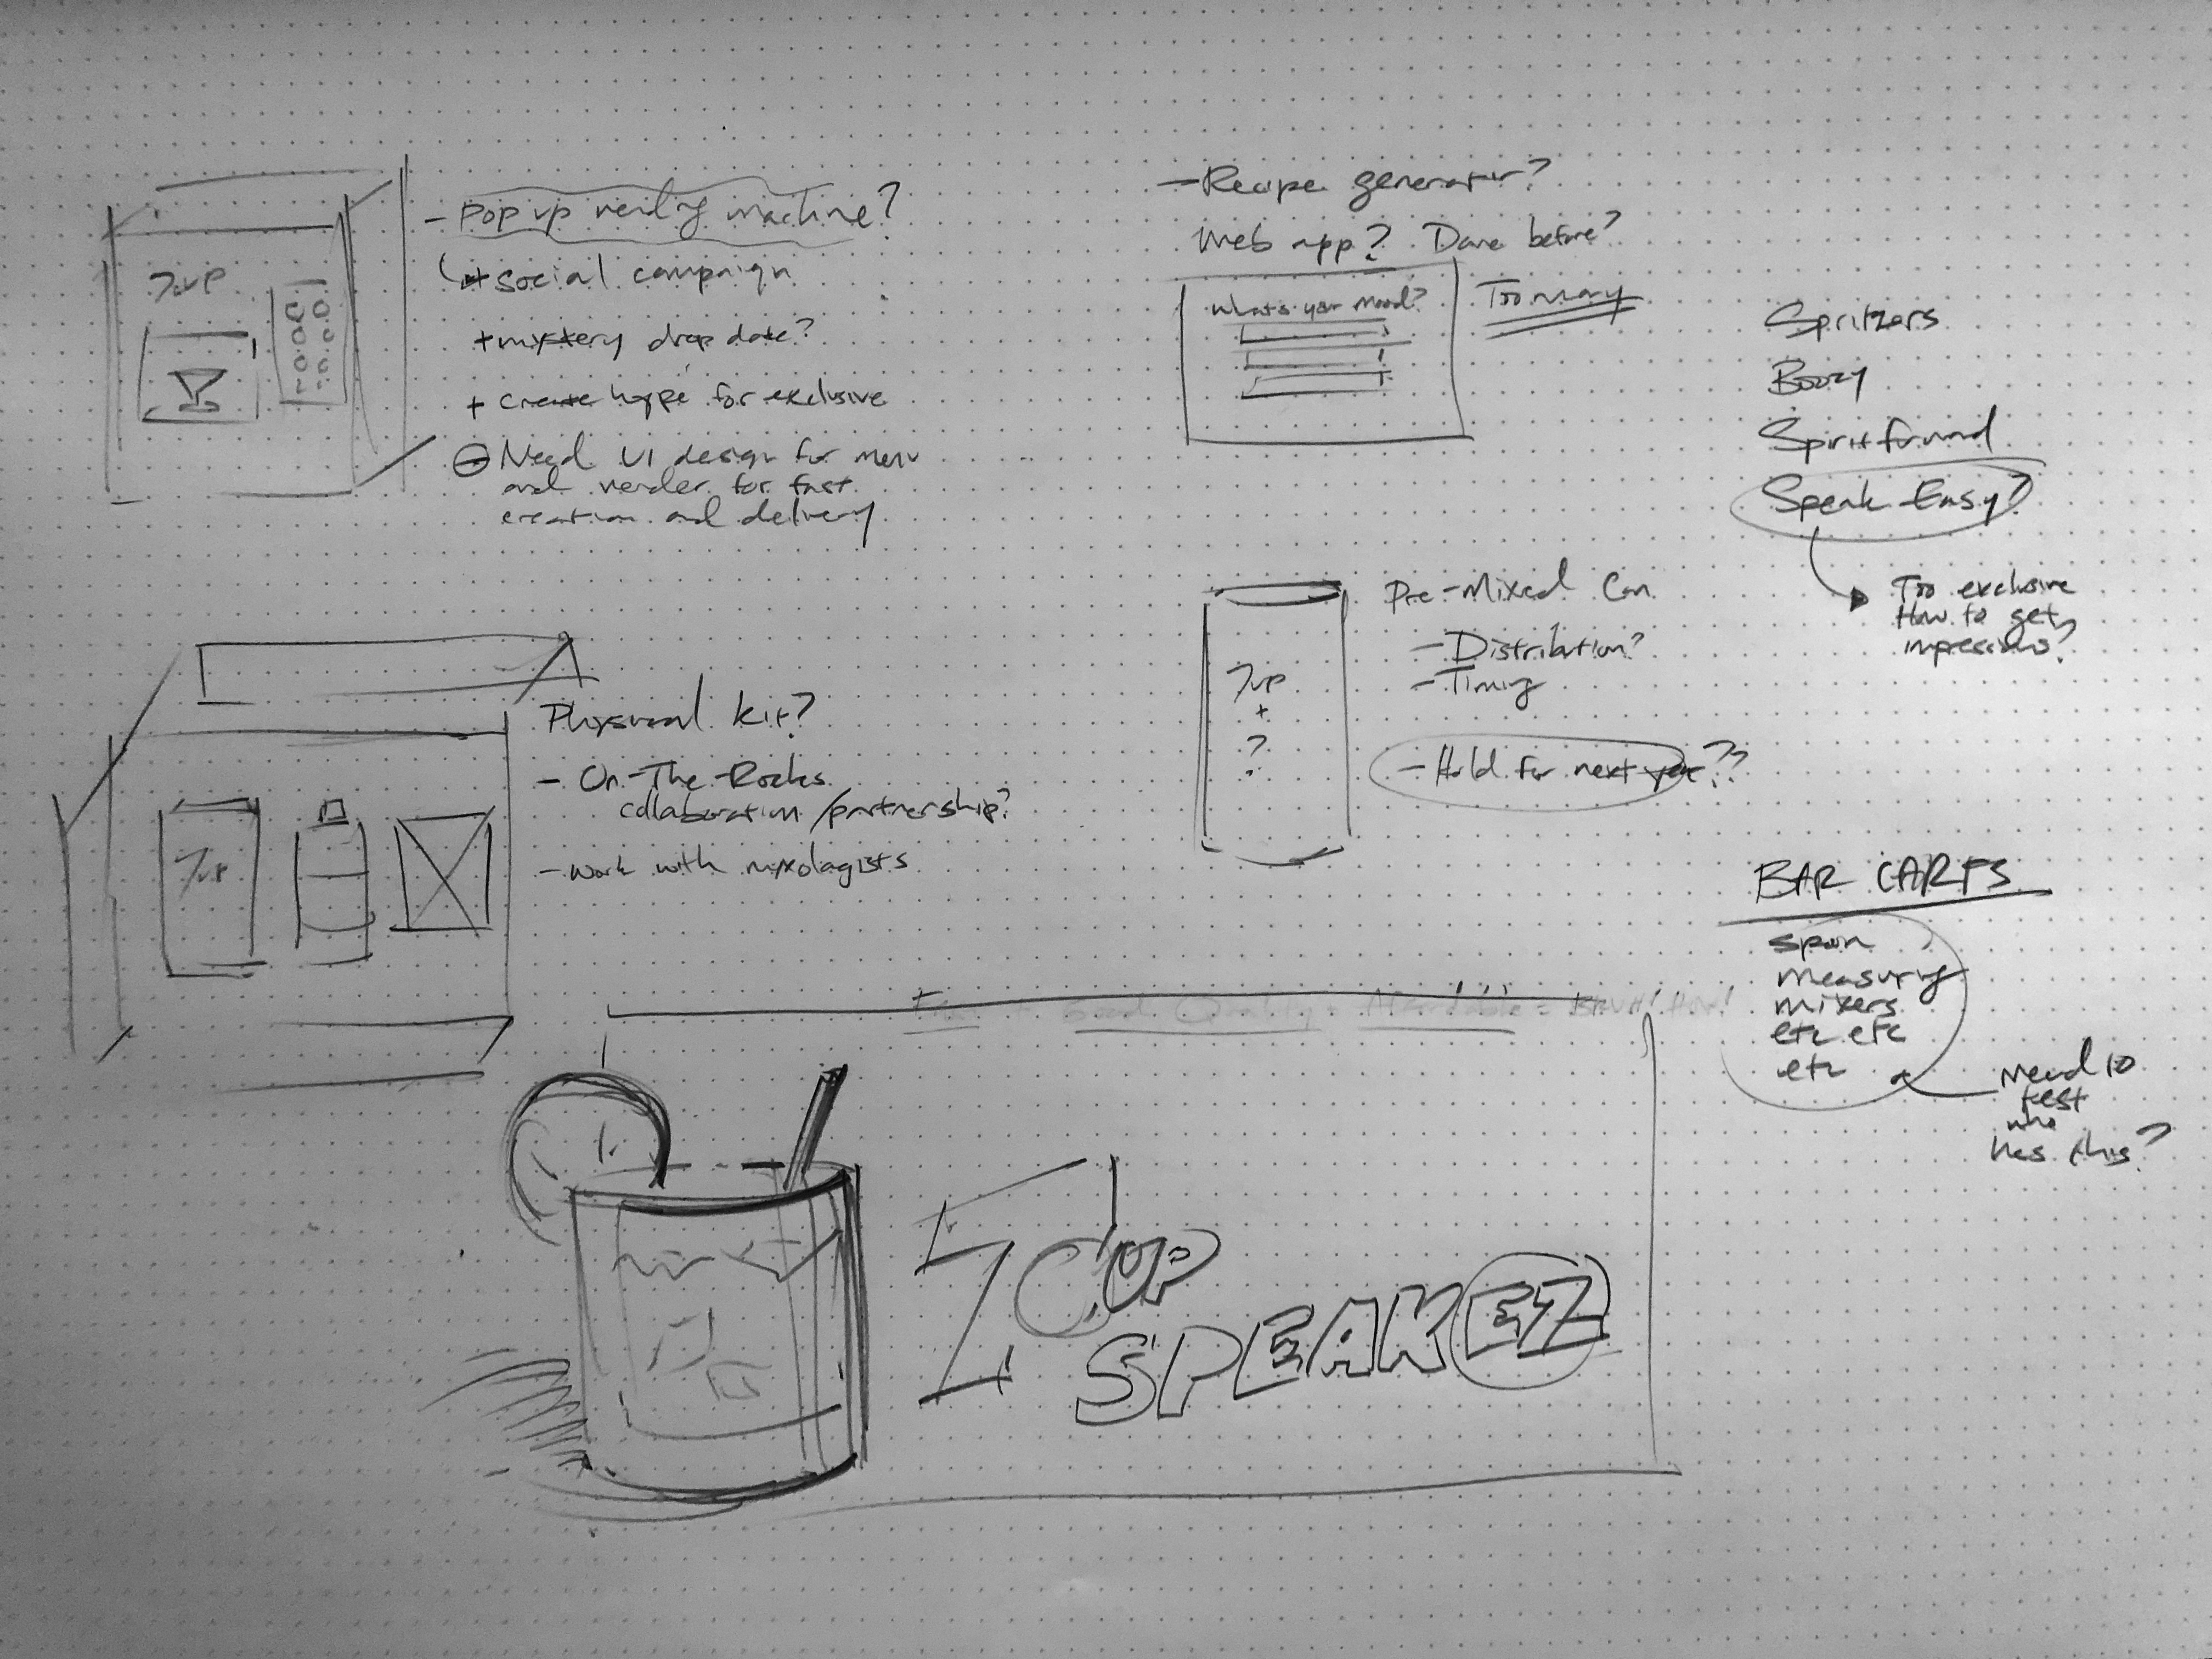 - Pop up vending machine?
+ social campaign
+ mystery drop date?
+ create hype for exclusive
- Need UI design for menu
and vender for fast
creation and delivery
7up
- Recipe generator?
Web app? Done before?
What's your mood?
Too many
Spritzers
Boozy
Spirit forward
Speak Easy?
Too exclusive
How to get
impressions?
Physical kit?
- On-The-Rocks
collaboration/partnership?
- work with mixologists
7up
Pre-Mixed Can
- Distribution?
- Timing
- Hold for next year??
7up
+
?
BAR CARTS
spoon
measuring
mixers
etc etc
etc
Need to
test
who
has this?
Good Quality
7UP
SPEAKEZ